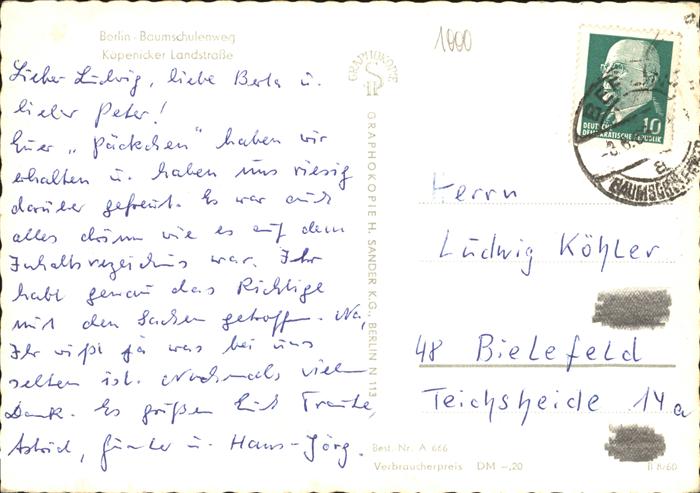 Berlin - Baumschulenweg
Köpenicker Landstraße
Lieber Ludwig, liebe Berta u.
lieber Peter!
Euer „Päckchen“ haben wir
erhalten u. haben uns riesig
darüber gefreut. Es war auch
alles drinn wie es auf dem
Inhaltsverzeichnis war. Ihr
habt genau das Richtige
mit den Sachen getroffen. Na,
Ihr wißt ja was bei uns
selten ist. Nochmals vielen
Dank. Es grüßen Euch Traute,
Astrid, Günter u. Hans-Jörg.
GRAPHOKOPIE
GRAPHOKOPIE H. SANDER K.G., BERLIN N 113
1000
DEUTSCHE
DEMOKRATISCHE REPUBLIK
10
Herrn
Ludwig Köhler
48 Bielefeld
Teichsheide 14a
Best. Nr. A 666
Verbraucherpreis DM -,20
II 8/60